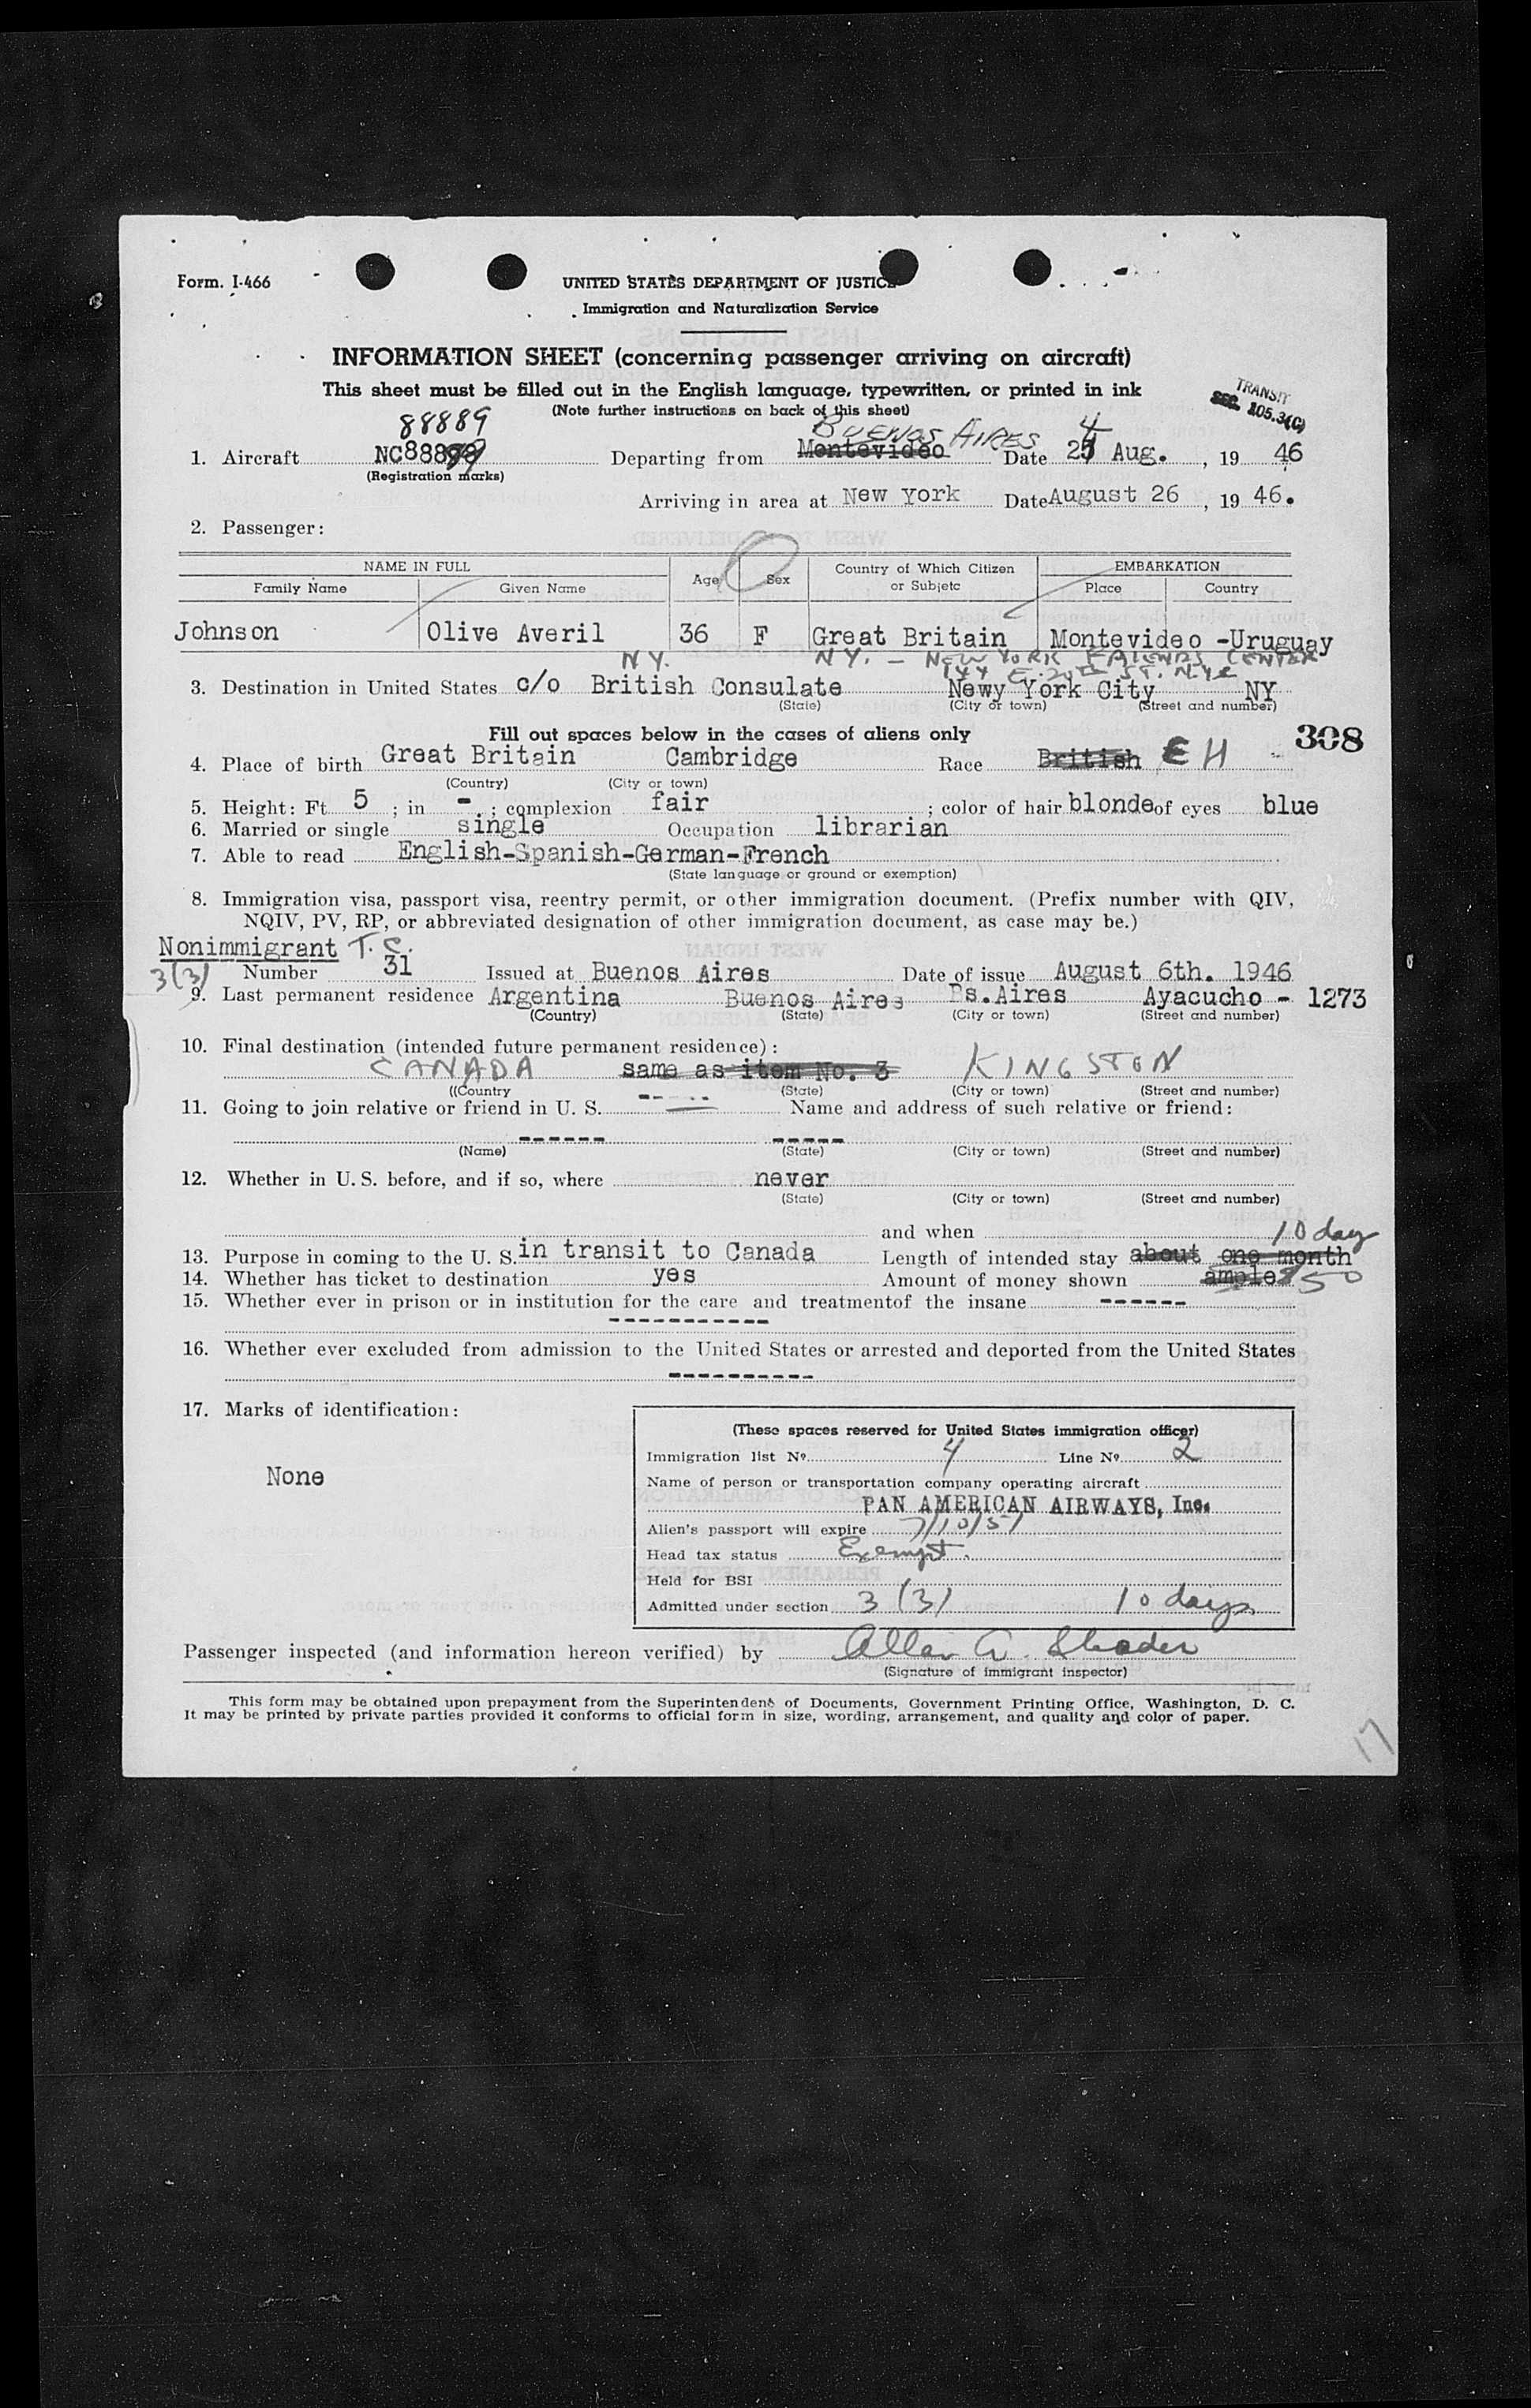 Form. I-466
UNITED STATES DEPARTMENT OF JUSTICE
Immigration and Naturalization Service
INFORMATION SHEET (concerning passenger arriving on aircraft)
This sheet must be filled out in the English language, typewritten, or printed in ink
(Note further instructions on back of this sheet)
TRANSIT
SEC. 105.3(C)
88889
BUENOS AIRES 4
1. Aircraft NC88899 Departing from Montevideo Date 25 Aug. , 19 46
(Registration marks)
Arriving in area at New York Date August 26 , 19 46.
2. Passenger:
NAME IN FULL Age Sex Country of Which Citizen or Subjetc EMBARKATION
Family Name Given Name Place Country
Johnson Olive Averil 36 F Great Britain Montevideo -Uruguay
N.Y. N.Y. – NEW YORK FRIENDS CENTER
144 E. 20th ST. N.Y.C
3. Destination in United States c/o British Consulate Newy York City NY
(State) (City or town) (Street and number)
Fill out spaces below in the cases of aliens only
308
4. Place of birth Great Britain Cambridge Race British E H
(Country) (City or town)
5. Height: Ft. 5 ; in - ; complexion fair ; color of hair blonde of eyes blue
6. Married or single single Occupation librarian
7. Able to read English-Spanish-German-French
(State language or ground or exemption)
8. Immigration visa, passport visa, reentry permit, or other immigration document. (Prefix number with QIV,
NQIV, PV, RP, or abbreviated designation of other immigration document, as case may be.)
Nonimmigrant T.C.
3(3) Number 31 Issued at Buenos Aires Date of issue August 6th. 1946
9. Last permanent residence Argentina Buenos Aires Bs.Aires Ayacucho - 1273
(Country) (State) (City or town) (Street and number)
10. Final destination (intended future permanent residence) :
CANADA same as item No. 3 KINGSTON
((Country (State) (City or town) (Street and number)
11. Going to join relative or friend in U. S. ----- Name and address of such relative or friend:
------ -----
(Name) (State) (City or town) (Street and number)
12. Whether in U. S. before, and if so, where never
(State) (City or town) (Street and number)
and when
10 day
13. Purpose in coming to the U. S. in transit to Canada Length of intended stay about one month
14. Whether has ticket to destination yes Amount of money shown ample $50
15. Whether ever in prison or in institution for the care and treatmentof the insane ------
-----------
16. Whether ever excluded from admission to the United States or arrested and deported from the United States
----------
17. Marks of identification:
None
(These spaces reserved for United States immigration officer)
Immigration list Nº 4 Line Nº 2
Name of person or transportation company operating aircraft
PAN AMERICAN AIRWAYS, Inc.
Alien's passport will expire 7/10/51
Head tax status Exempt.
Held for BSI
Admitted under section 3 (3) 10 days
Passenger inspected (and information hereon verified) by Allen A. Shader
(Signature of immigrant inspector)
This form may be obtained upon prepayment from the Superintendent of Documents, Government Printing Office, Washington, D. C.
It may be printed by private parties provided it conforms to official form in size, wording, arrangement, and quality and color of paper.
17